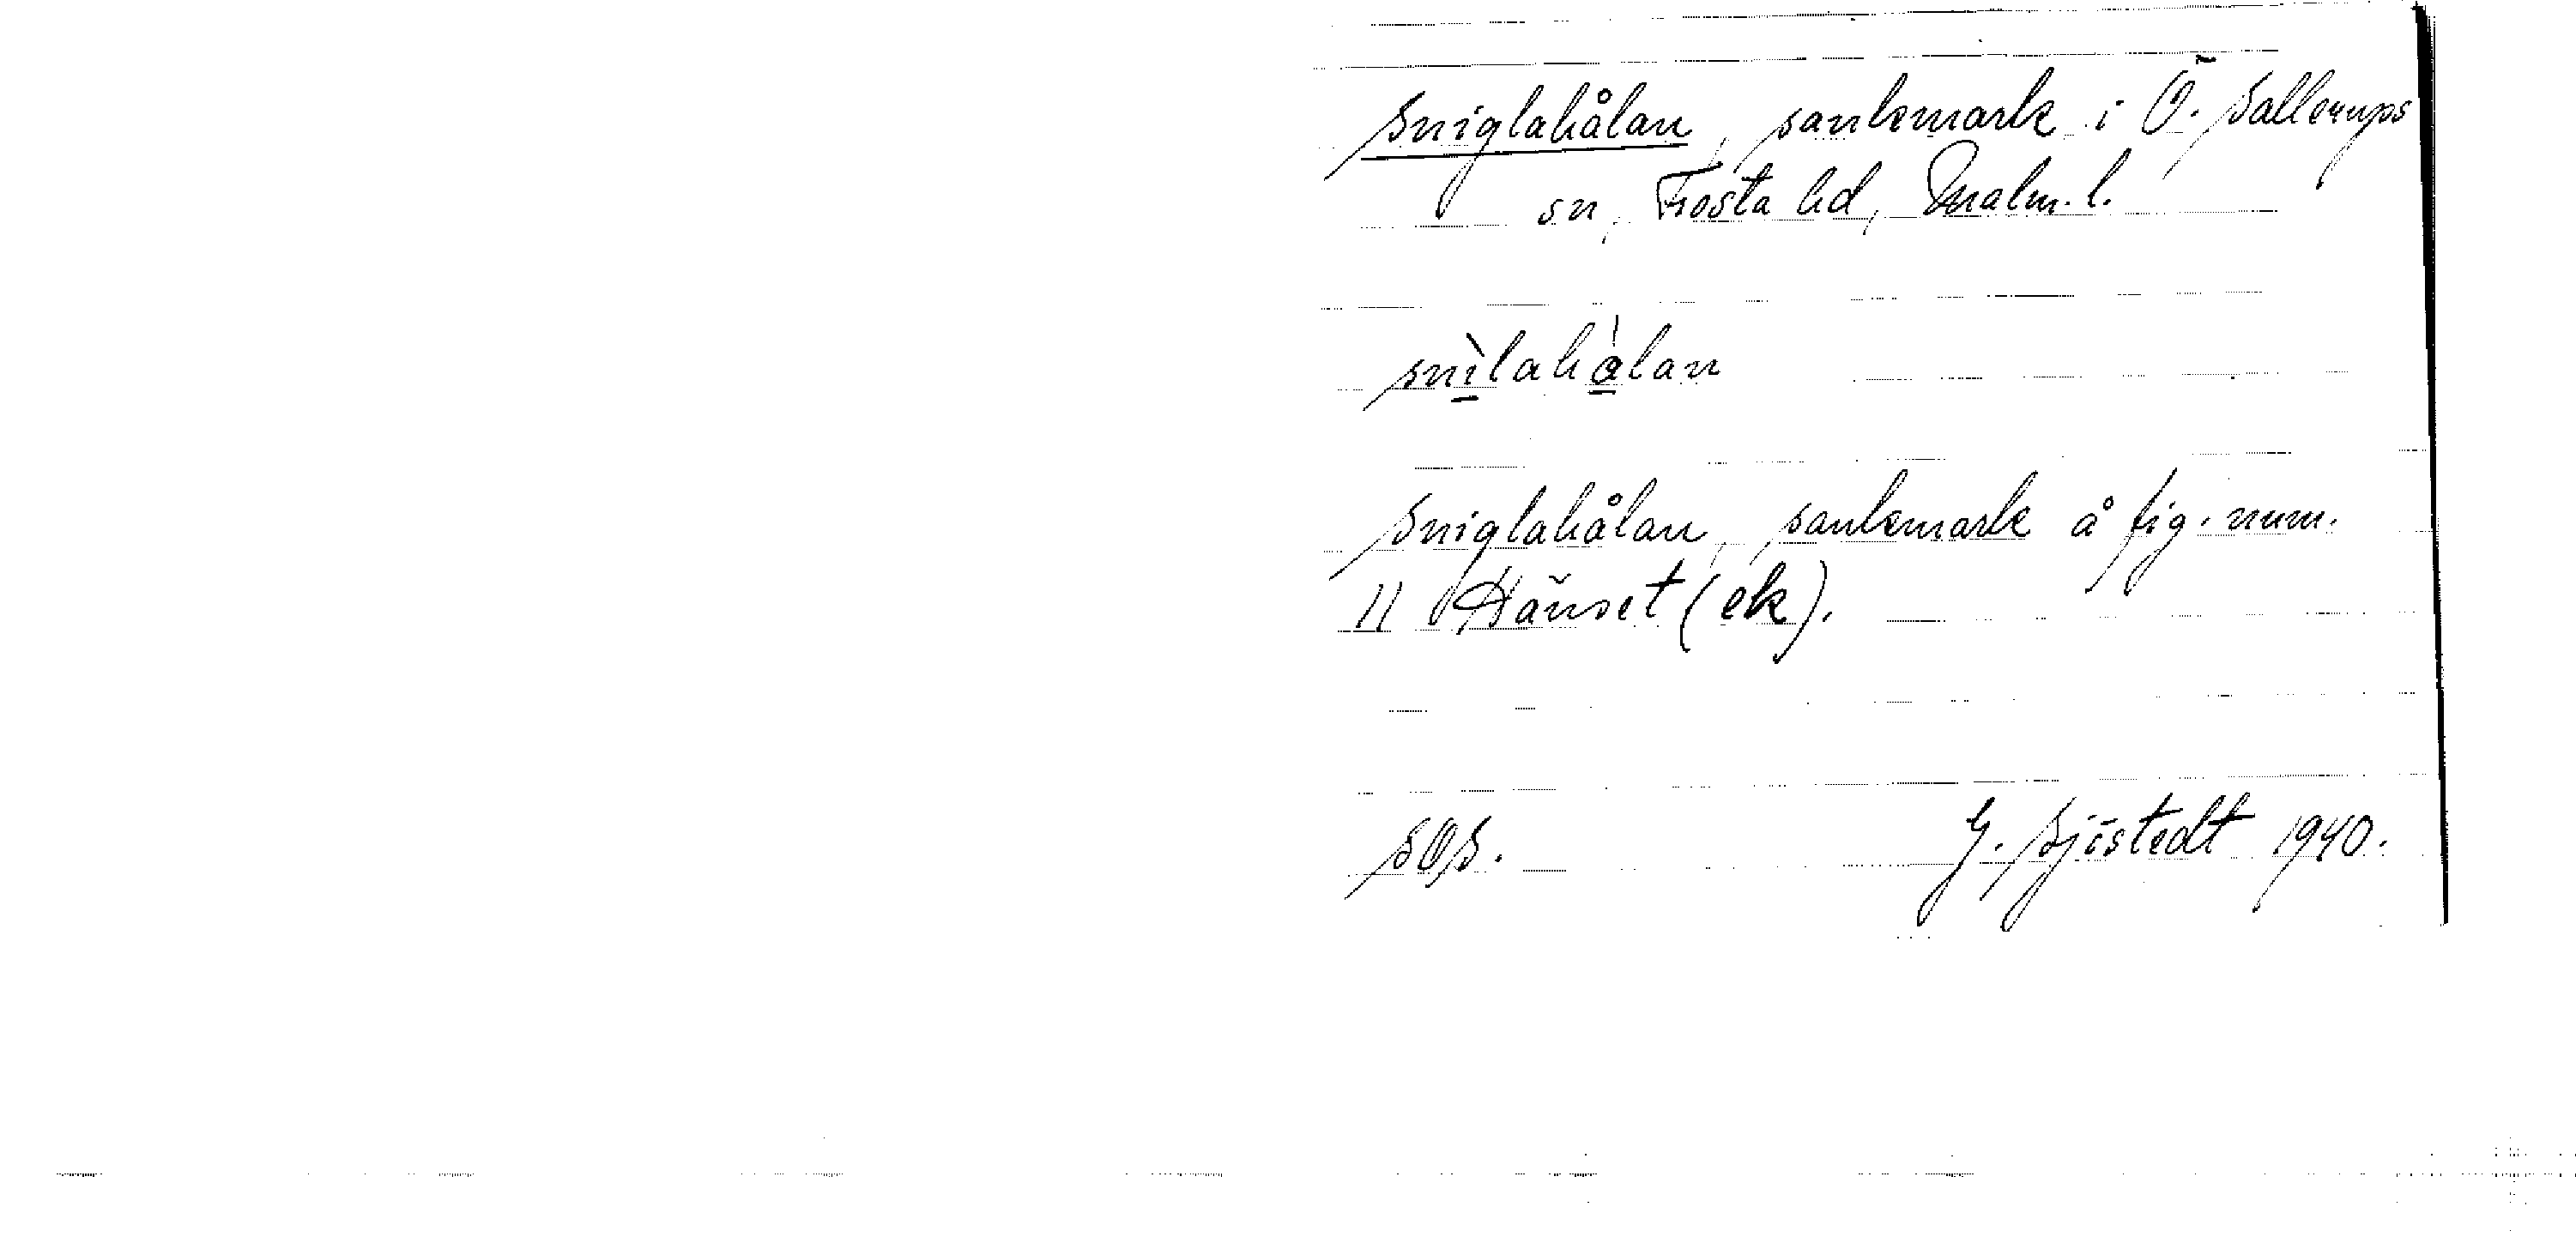 Sniglahålan, sankmark i Ö. Sallerups
sn, Frosta hd, Malm. l.
snìlahàlan
Sniglahålan, sankmark å fig. num.
11 Hänset (ek).
SOS. G. Sjöstedt 1940.